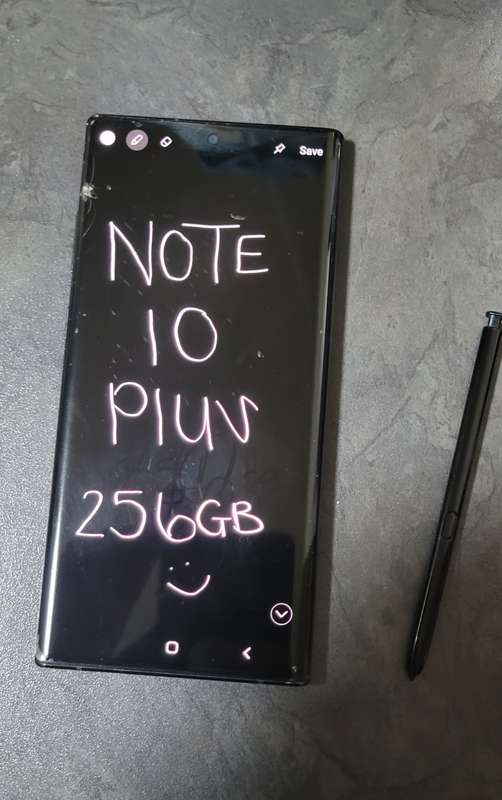 Save
NOTE
10
PlUS
256GB